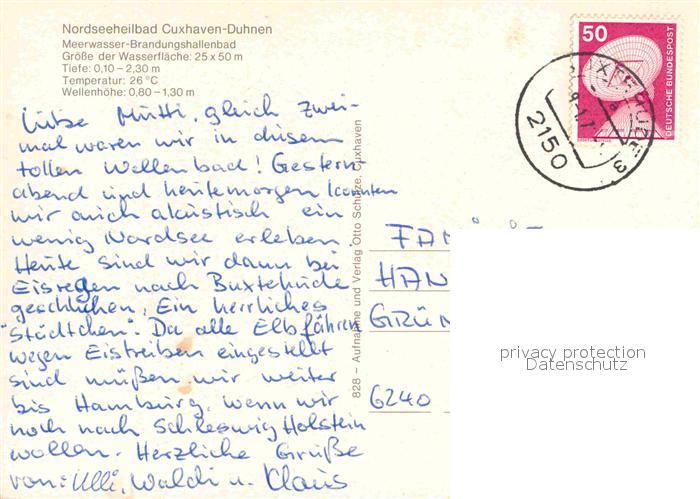 Nordseeheilbad Cuxhaven-Duhnen
Meerwasser-Brandungshallenbad
Größe der Wasserfläche: 25 x 50 m
Tiefe: 0,10 – 2,30 m
Temperatur: 26 °C
Wellenhöhe: 0,80 – 1,30 m
Liebe Mutti, gleich zwei-
mal waren wir in diesem
tollen Wellenbad! Gestern-
abend und heutemorgen konnten
wir auch akustisch ein
wenig Nordsee erleben.
Heute sind wir dann bei
Eisregen nach Buxtehude
geschlichen, Ein herrliches
"Städtchen". Da alle Elbfähren
wegen Eistreiben eingestellt
sind müßen wir weiter
bis Hamburg, wenn wir
noch nach Schleswig Holstein
wollen. Herzliche Grüße
von: Ulli, Waldi u. Klaus
828 – Aufnahme und Verlag Otto Schulze, Cuxhaven
50
DEUTSCHE BUNDESPOST
2150
HAN
GRÜN
6240
privacy protection
Datenschutz